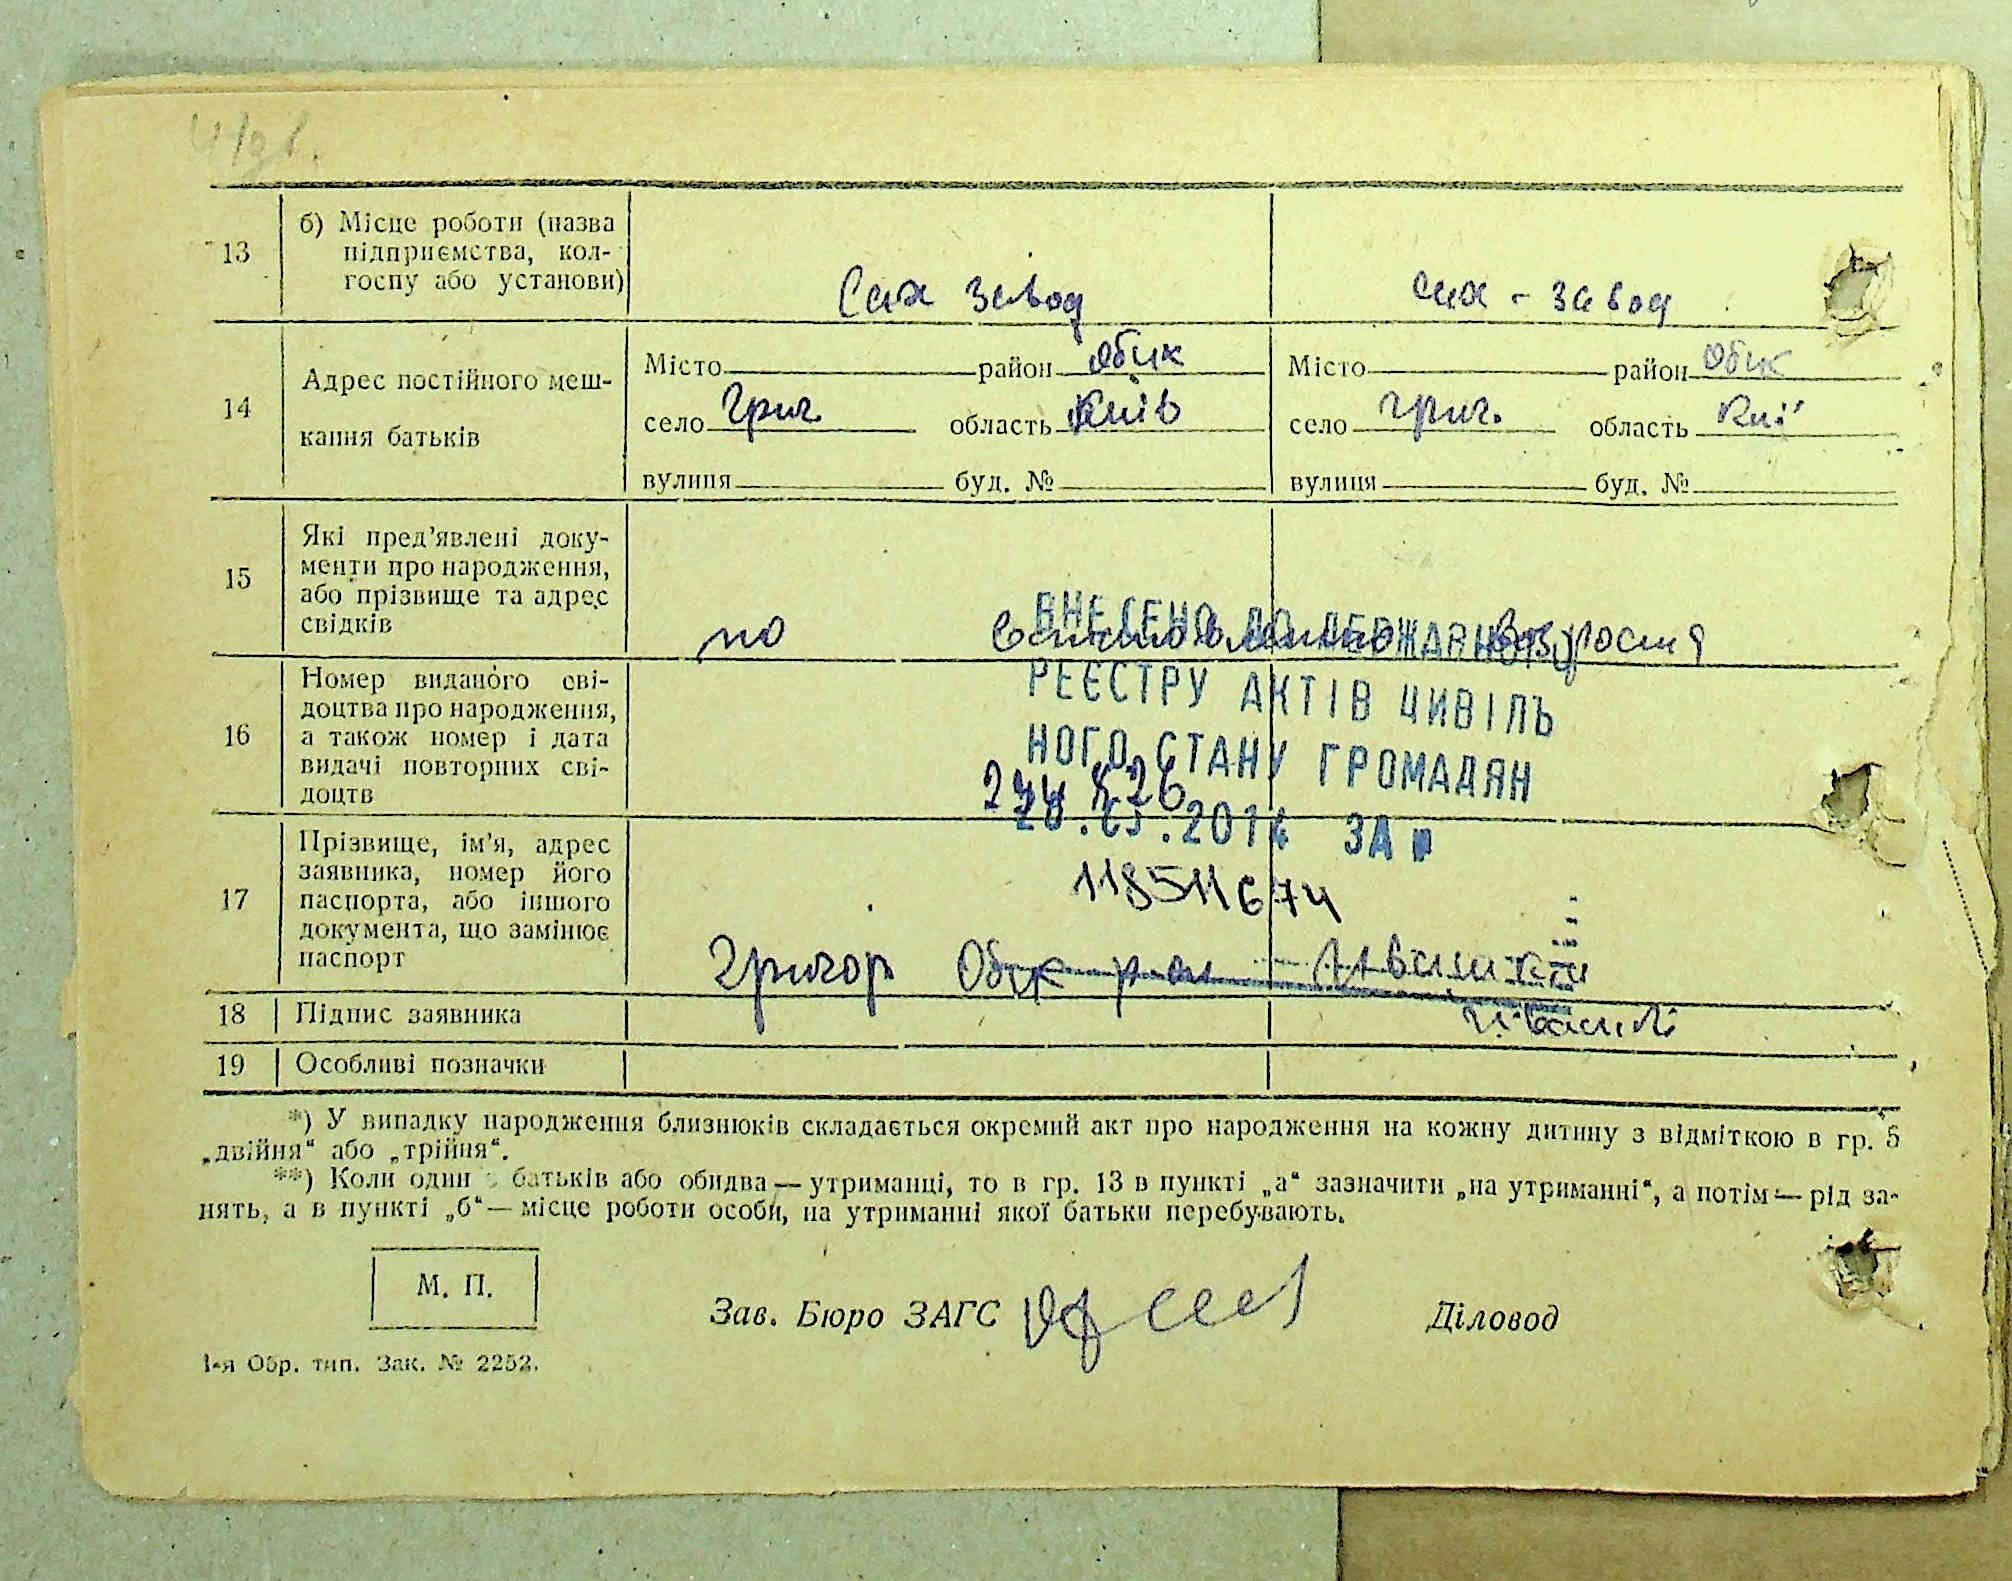 13
б) Місце роботи (назва
підприємства, кол-
госпу або установи)
Сах завод
сах - завод
14
Адрес постійного меш-
кання батьків
Місто район Обих
село Григ. область Київ
вулиця буд. №
Місто район Обих
село Григ. область Киї
вулиця буд. №
15
Які пред'явлені доку-
менти про народження,
або прізвище та адрес
свідків
по
ВНЕСЕНО ДО ДЕРЖАВНОГО
РЕЄСТРУ АКТІВ ЦИВІЛЬ
НОГО СТАНУ ГРОМАДЯН
ЗА №
118511674
16
Номер виданого сві-
доцтва про народження,
а також номер і дата
видачі повторних сві-
доцтв
17
Прізвище, ім'я, адрес
заявника, номер його
паспорта, або іншого
документа, що замінює
паспорт
Григор
18
Підпис заявника
19
Особливі позначки
*) У випадку народження близнюків складається окремий акт про народження на кожну дитину з відміткою в гр. 5
„двійня“ або „трійня“.
**) Коли один з батьків або обидва — утриманці, то в гр. 13 в пункті „а“ зазначити „на утриманні“, а потім — рід за-
нять, а в пункті „б“ — місце роботи особи, на утриманні якої батьки перебувають.
М. П.
Зав. Бюро ЗАГС
Діловод
1-я Обр. тип. Зак. № 2252.